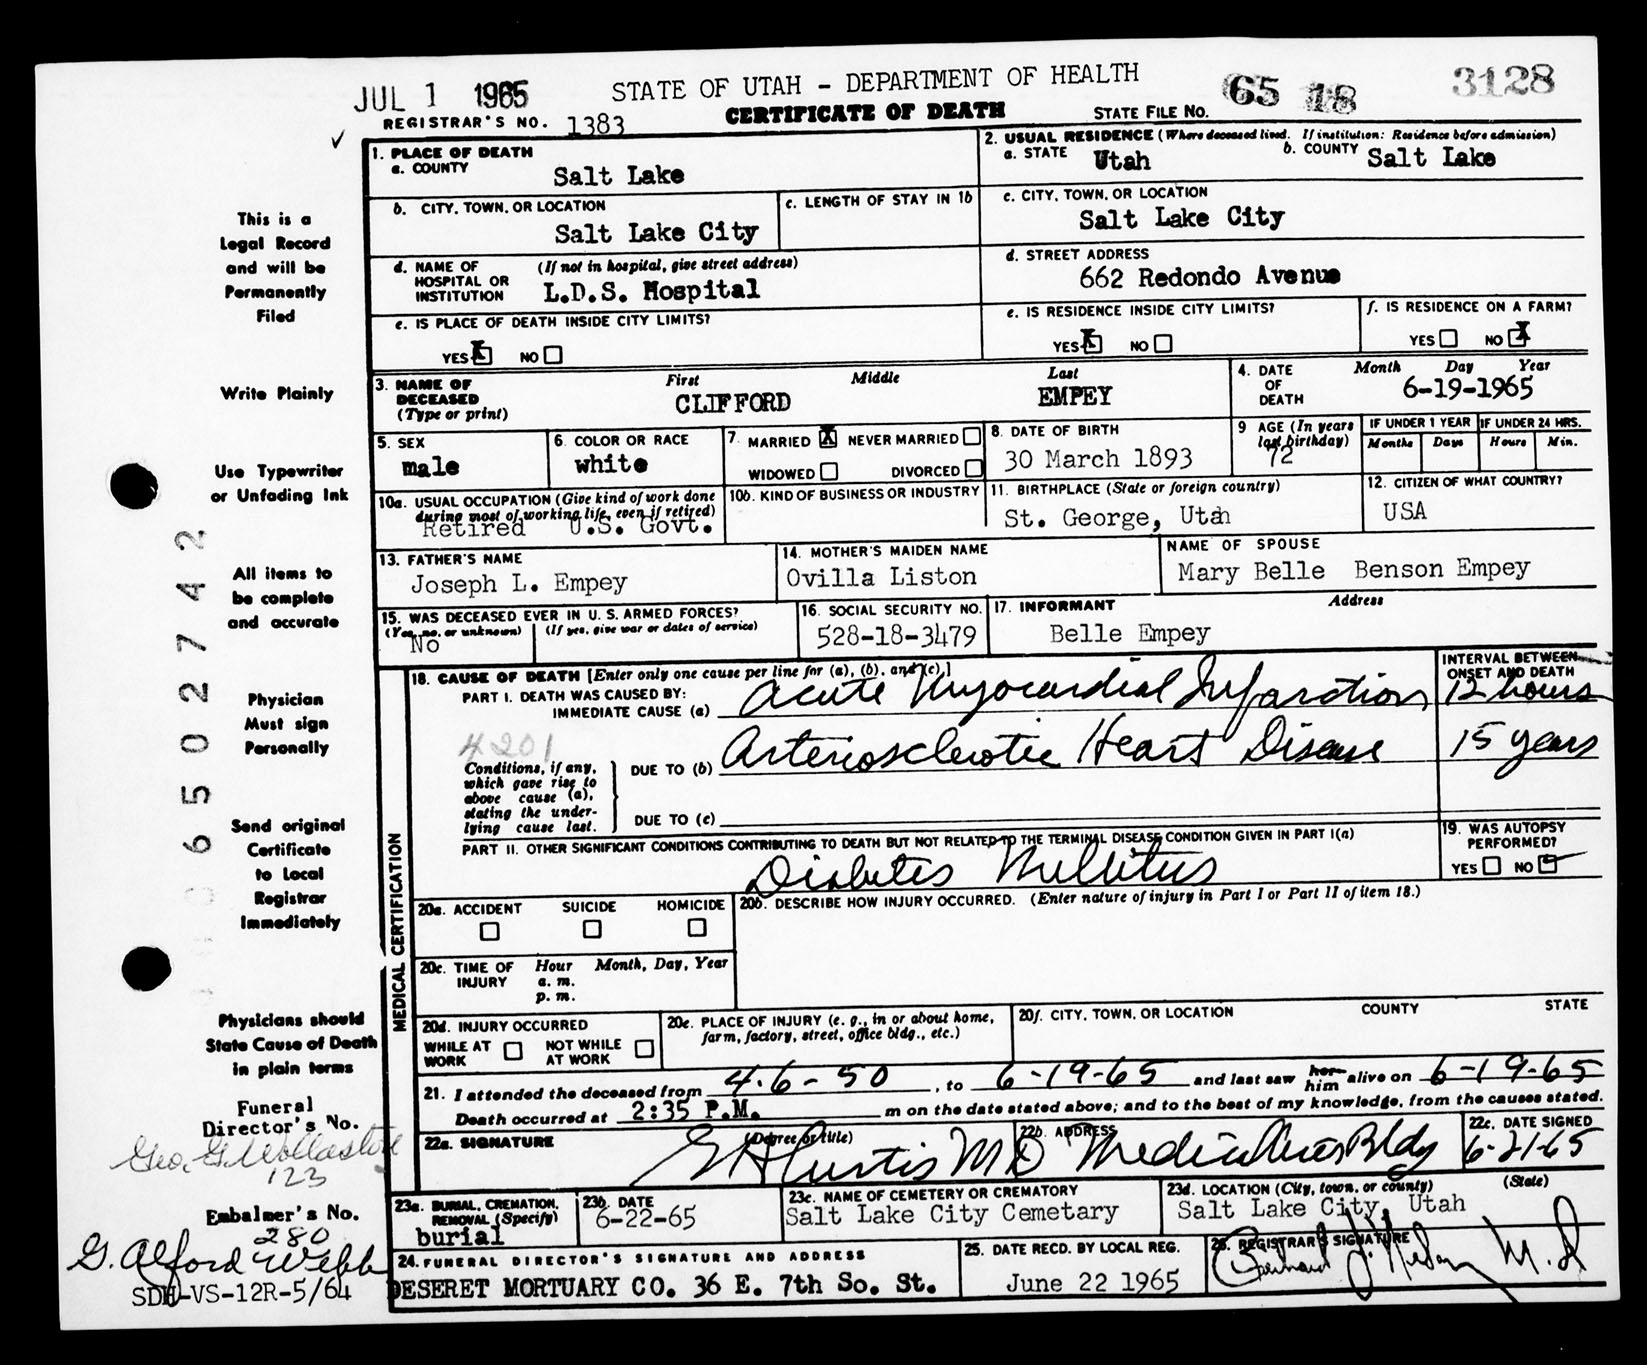 JUL 1 1965 STATE OF UTAH – DEPARTMENT OF HEALTH 65 18 3128
REGISTRAR'S NO. 1383 CERTIFICATE OF DEATH STATE FILE NO.
1. PLACE OF DEATH
a. COUNTY Salt Lake
2. USUAL RESIDENCE (Where deceased lived. If institution: Residence before admission)
a. STATE Utah b. COUNTY Salt Lake
b. CITY, TOWN, OR LOCATION Salt Lake City
c. LENGTH OF STAY IN 1b
c. CITY, TOWN, OR LOCATION
Salt Lake City
d. NAME OF HOSPITAL OR INSTITUTION (If not in hospital, give street address)
L.D.S. Hospital
d. STREET ADDRESS
662 Redondo Avenue
e. IS PLACE OF DEATH INSIDE CITY LIMITS?
YES X NO
e. IS RESIDENCE INSIDE CITY LIMITS?
YES X NO
f. IS RESIDENCE ON A FARM?
YES NO X
3. NAME OF DECEASED (Type or print)
First Middle Last
CLIFFORD EMPEY
4. DATE OF DEATH Month Day Year
6-19-1965
5. SEX
male
6. COLOR OR RACE
white
7. MARRIED X NEVER MARRIED
WIDOWED DIVORCED
8. DATE OF BIRTH
30 March 1893
9 AGE (In years last birthday)
72
IF UNDER 1 YEAR IF UNDER 24 HRS.
Months Days Hours Min.
10a. USUAL OCCUPATION (Give kind of work done during most of working life, even if retired)
Retired U.S. Govt.
10b. KIND OF BUSINESS OR INDUSTRY
11. BIRTHPLACE (State or foreign country)
St. George, Utah
12. CITIZEN OF WHAT COUNTRY?
USA
13. FATHER'S NAME
Joseph L. Empey
14. MOTHER'S MAIDEN NAME
Ovilla Liston
NAME OF SPOUSE
Mary Belle Benson Empey
15. WAS DECEASED EVER IN U.S. ARMED FORCES?
(Yes, no, or unknown) (If yes, give war or dates of service)
No
16. SOCIAL SECURITY NO.
528-18-3479
17. INFORMANT Address
Belle Empey
18. CAUSE OF DEATH [Enter only one cause per line for (a), (b), and (c).]
INTERVAL BETWEEN ONSET AND DEATH
PART I. DEATH WAS CAUSED BY:
IMMEDIATE CAUSE (a) Acute Myocardial Infarction 12 hours
4201
Conditions, if any, which gave rise to above cause (a), stating the underlying cause last.
DUE TO (b) Arteriosclerotic Heart Disease 15 years
DUE TO (c)
PART II. OTHER SIGNIFICANT CONDITIONS CONTRIBUTING TO DEATH BUT NOT RELATED TO THE TERMINAL DISEASE CONDITION GIVEN IN PART I(a)
Diabetes Mellitus
19. WAS AUTOPSY PERFORMED?
YES NO
MEDICAL CERTIFICATION
20a. ACCIDENT SUICIDE HOMICIDE
20b. DESCRIBE HOW INJURY OCCURRED. (Enter nature of injury in Part I or Part II of item 18.)
20c. TIME OF INJURY Hour Month, Day, Year
a. m.
p. m.
20d. INJURY OCCURRED
WHILE AT WORK NOT WHILE AT WORK
20e. PLACE OF INJURY (e. g., in or about home, farm, factory, street, office bldg., etc.)
20f. CITY, TOWN, OR LOCATION COUNTY STATE
21. I attended the deceased from 4-6-50, to 6-19-65 and last saw her him alive on 6-19-65
Death occurred at 2:35 P.M. m on the date stated above; and to the best of my knowledge, from the causes stated.
22a. SIGNATURE (Degree or title)
Curtis MD
22b. ADDRESS
Medical Arts Bldg
22c. DATE SIGNED
6-21-65
23a. BURIAL, CREMATION, REMOVAL (Specify)
burial
23b. DATE
6-22-65
23c. NAME OF CEMETERY OR CREMATORY
Salt Lake City Cemetary
23d. LOCATION (City, town, or county) (State)
Salt Lake City, Utah
24. FUNERAL DIRECTOR'S SIGNATURE AND ADDRESS
DESERET MORTUARY CO. 36 E. 7th So. St.
25. DATE RECD. BY LOCAL REG.
June 22 1965
26. REGISTRAR'S SIGNATURE
M.D
This is a
Legal Record
and will be
Permanently
Filed
Write Plainly
Use Typewriter
or Unfading Ink
All items to
be complete
and accurate
Physician
Must sign
Personally
Send original
Certificate
to Local
Registrar
Immediately
Physicians should
State Cause of Death
in plain terms
Funeral
Director's No.
Geo. G. Wollastone
123
Embalmer's No.
280
G. Alford Webb
SDH-VS-12R-5/64
6502742